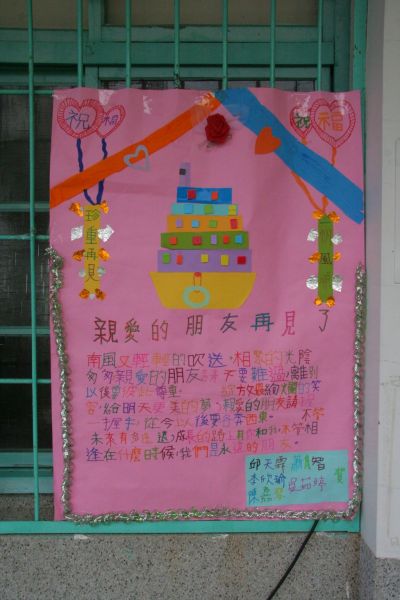 祝
祝
祝
福
珍重再見
風
親愛的朋友再見了
南風又輕輕的吹送,相聚的光陰
匆匆親愛的朋友 不要難過,離別
以後要彼此珍重 給放最絢爛的笑
容,給明天更美的夢,親愛的朋友請
一握手,從今以後要各奔西東 不管
未來有多遠 成長的路上有你和我不管相
逢在什麼時候,我們是永遠的朋友。
邱天霖 智
李欣瑜
陳 茹婷 賀